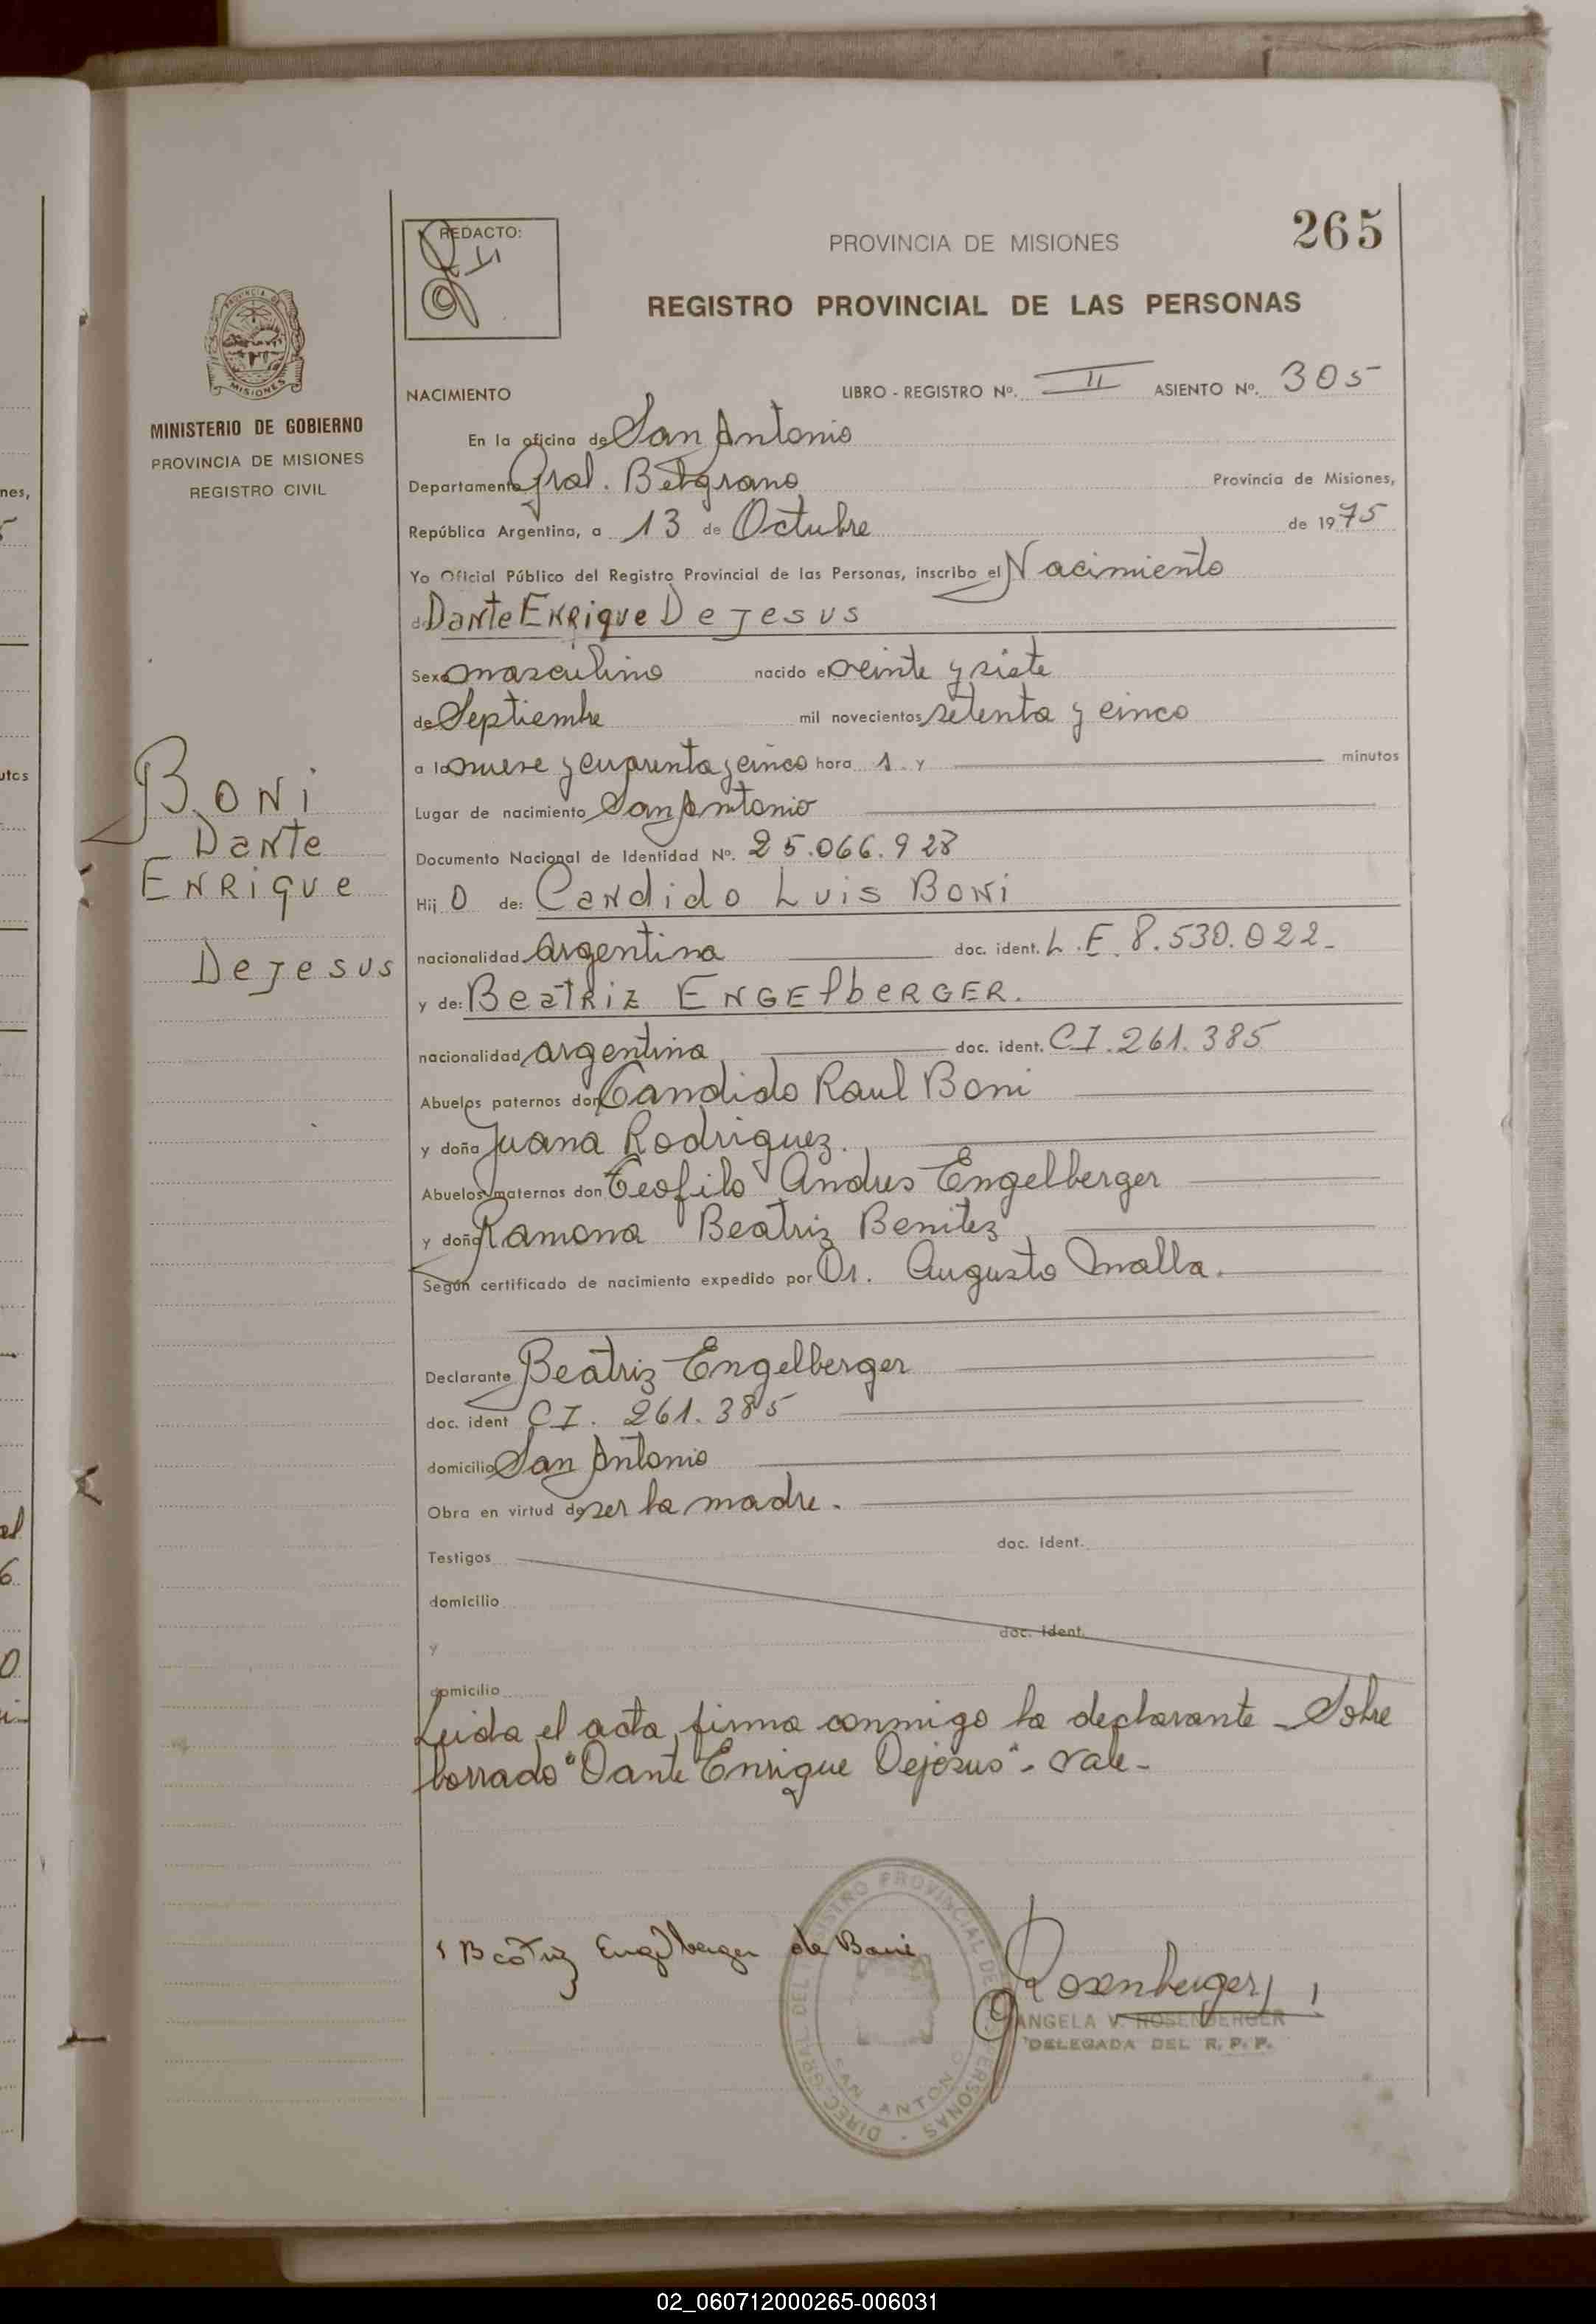 265
REDACTO:
PROVINCIA DE MISIONES
REGISTRO PROVINCIAL DE LAS PERSONAS
PROVINCIA DE
MISIONES
MINISTERIO DE GOBIERNO
PROVINCIA DE MISIONES
REGISTRO CIVIL
NACIMIENTO LIBRO - REGISTRO Nº. II ASIENTO Nº. 305
En la oficina de San Antonio
Departamento Gral. Belgrano Provincia de Misiones,
República Argentina, a 13 de Octubre de 1975
Yo Oficial Público del Registro Provincial de las Personas, inscribo el Nacimiento
de Dante Enrique Dejesus
Sexo masculino nacido el veinte y siete
de Septiembre mil novecientos setenta y cinco
a la nueve y cuarenta y cinco hora s y minutos
Lugar de nacimiento San Antonio
Documento Nacional de Identidad Nº. 25.066.928
Hij o de: Candido Luis Boni
nacionalidad argentina doc. ident. L.E. 8.530.022-
y de: Beatriz ENGElbERGER.
nacionalidad argentina doc. ident. CI. 261.385
Abuelos paternos don Candido Raul Boni
y doña Juana Rodriguez.
Abuelos maternos don Teofilo Andres Engelberger
y doña Ramona Beatriz Benitez
Según certificado de nacimiento expedido por Dr. Augusto Malla.
Declarante Beatriz Engelberger
doc. ident CI. 261.385
domicilio San Antonio
Obra en virtud de ser la madre.
Testigos doc. Ident.
domicilio
y doc. Ident.
domicilio
Leida el acta, firma conmigo la declarante - Sobre
borrado "Dante Enrique Dejesus" - vale -
Boni
Dante
Enrique
Dejesus
Beatriz Engelberger de Boni
Rosenberger
ANGELA V. ROSENBERGER
DELEGADA DEL R. P. P.
DIREC. GRAL. DEL REGISTRO PROVINCIAL DE PERSONAS
SAN ANTONIO
nes,
utos
02_060712000265-006031